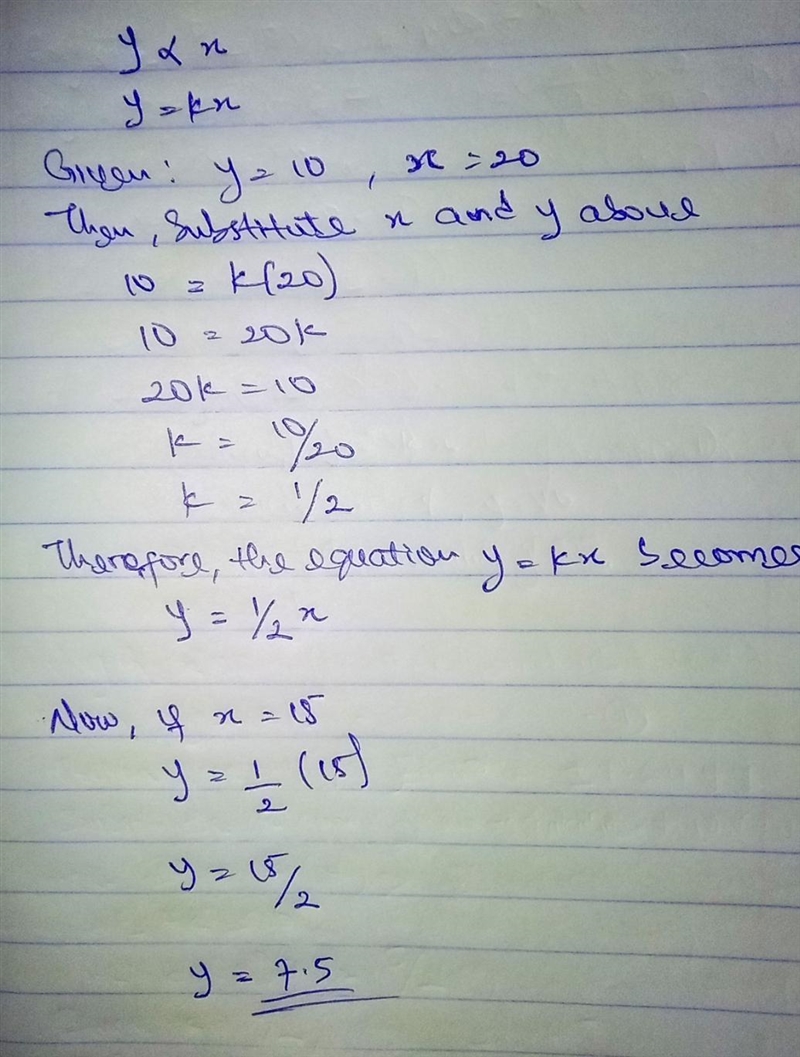 y ∝ x
y = kx
Given: y = 10 , x = 20
Then, Substitute x and y above
10 = k(20)
10 = 20k
20k = 10
k = 10/20
k = 1/2
Therefore, the equation y = kx becomes
y = 1/2 x
Now, if x = 15
y = 1/2 (15)
y = 15/2
y = 7.5